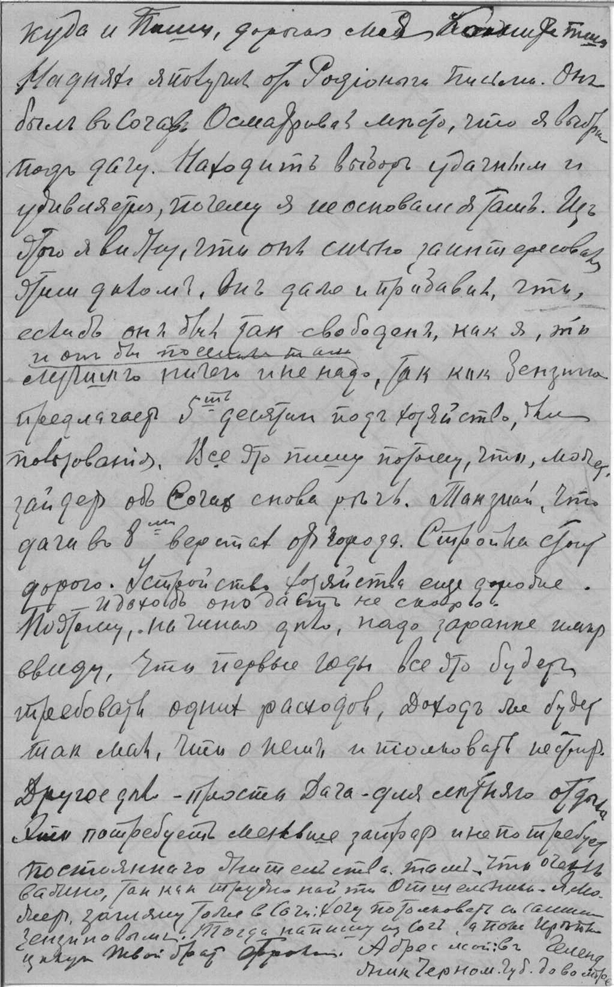 куда и Пиши, дорогая моя
На дняхъ я получил отъ Родіоныча письмо. Онъ
былъ въ Сочахъ. Осматривалъ мѣсто, что я выбралъ
подъ дачу. Находитъ выборъ удачнымъ и
удивляется, почему я не основался тамъ. Изъ
этого я вижу, что онъ сильно заинтересованъ
этимъ дѣломъ. Онъ даже и прибавилъ, что,
еслибъ онъ былъ так свободенъ, как я, то
и онъ бы поселился тамъ
лучшаго ничего и не надо, так как Зензиновъ
предлагает 5ть десятин подъ хозяйство, для
пользованія. Все это пишу потому, что, может,
зайдет объ Сочах снова рѣчь. Так знай, что
дача въ 8ми верстах отъ города. Стройка стоит
дорого. Устройство хозяйства еще дороже.
и доходъ оно дастъ не скоро
Поэтому, начиная дѣло, надо заранѣе имѣть
ввиду, что первые годы все это будетъ
требовать одних расходов, доходъ же будет
так мал, что о немъ и толковать не стоитъ
Другое дѣло - просто дача - для лѣтняго отдыха
Это потребуетъ меньше затрат и не потребует
постояннаго жительства тамъ, что очень
важно, так как трудно найти отшельника. Я, может
заглянуть в Сочи: хочу потолковать съ самим
Зензиновымъ. Тогда напишу из Соч, а пока
цѣлую твой брат Адрес мой въ Геленд
жик Черном. губ. до востреб